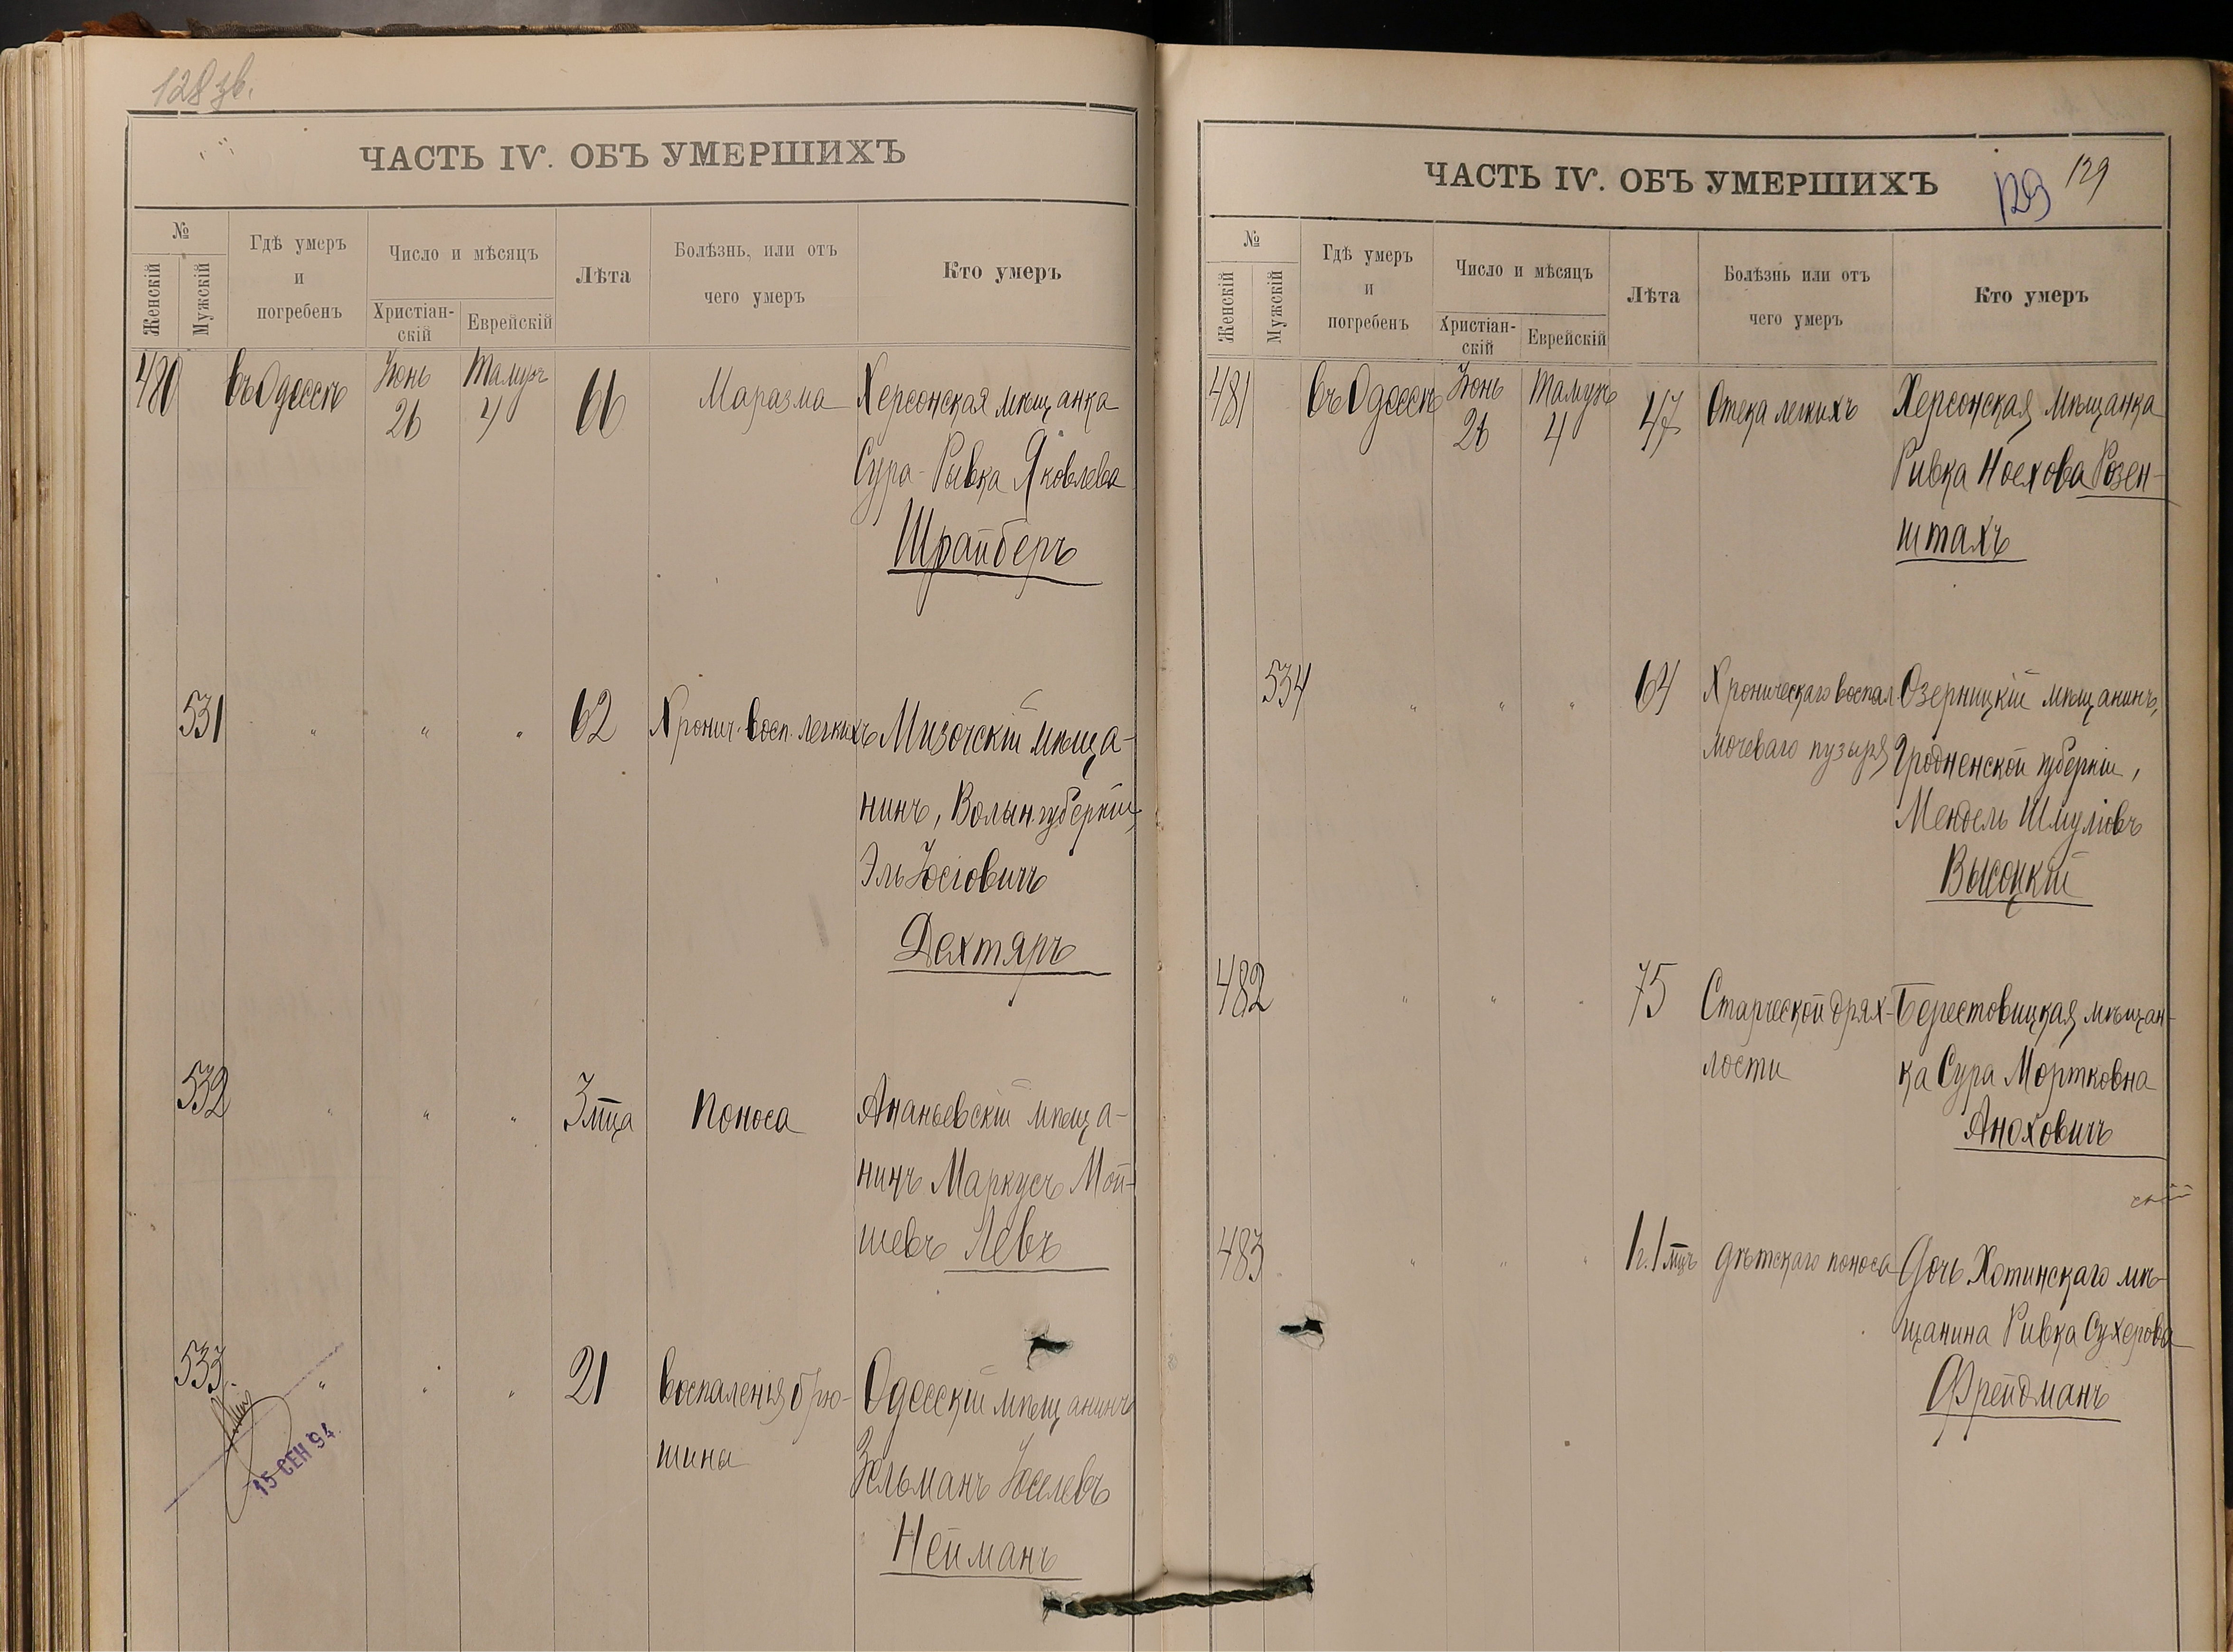 128 зв.
ЧАСТЬ IV. ОБЪ УМЕРШИХЪ
№
Женскій
Мужскій
Гдѣ умеръ
и
погребенъ
Число и мѣсяцъ
Христіан-
скій
Еврейскій
Лѣта
Болѣзнь, или отъ
чего умеръ
Кто умеръ
480 въ Одессѣ Іюнь 26 Тамузъ 4 66 Маразма Херсонская мѣщанка
Сура-Рывка Яковлева
Шрайберъ
531 " " " 62 Хронич. восп. легкихъ Мизочскій мѣща-
нинъ, Волын. губерніи,
Эль Іосіовичъ
Дехтяръ
532 " " " 3 мѣца Поноса Ананьевскій мѣща-
нинъ Маркусъ Мой-
шевъ Левъ
533 " " " 21 воспаленія брю- Одесскій мѣщанинъ
шины Зельманъ Іоселевъ
Нейманъ
15 СЕН 94
ЧАСТЬ IV. ОБЪ УМЕРШИХЪ
129 129
№
Женскій
Мужскій
Гдѣ умеръ
и
погребенъ
Число и мѣсяцъ
Христіан-
скій
Еврейскій
Лѣта
Болѣзнь или отъ
чего умеръ
Кто умеръ
481 въ Одессѣ Іюнь 26 Тамузъ 4 47 Отека легкихъ Херсонская мѣщанка
Ривка Ноехова Розен-
штахъ
534 " " " 64 Хроническаго воспал. Озерницкій мѣщанинъ,
мочеваго пузыря Гродненской губерніи,
Мендель Шмуліовъ
Высоцкій
482 " " " 75 Старческой дрях- Берестовицкая мѣщан-
лости ка Сура Мортковна
Аноховичъ
скій
483 " " " 1 г. 1 мцъ дѣтскаго поноса Дочь Хотинскаго мѣ-
щанина Ривка Сухерова
Фрейдманъ